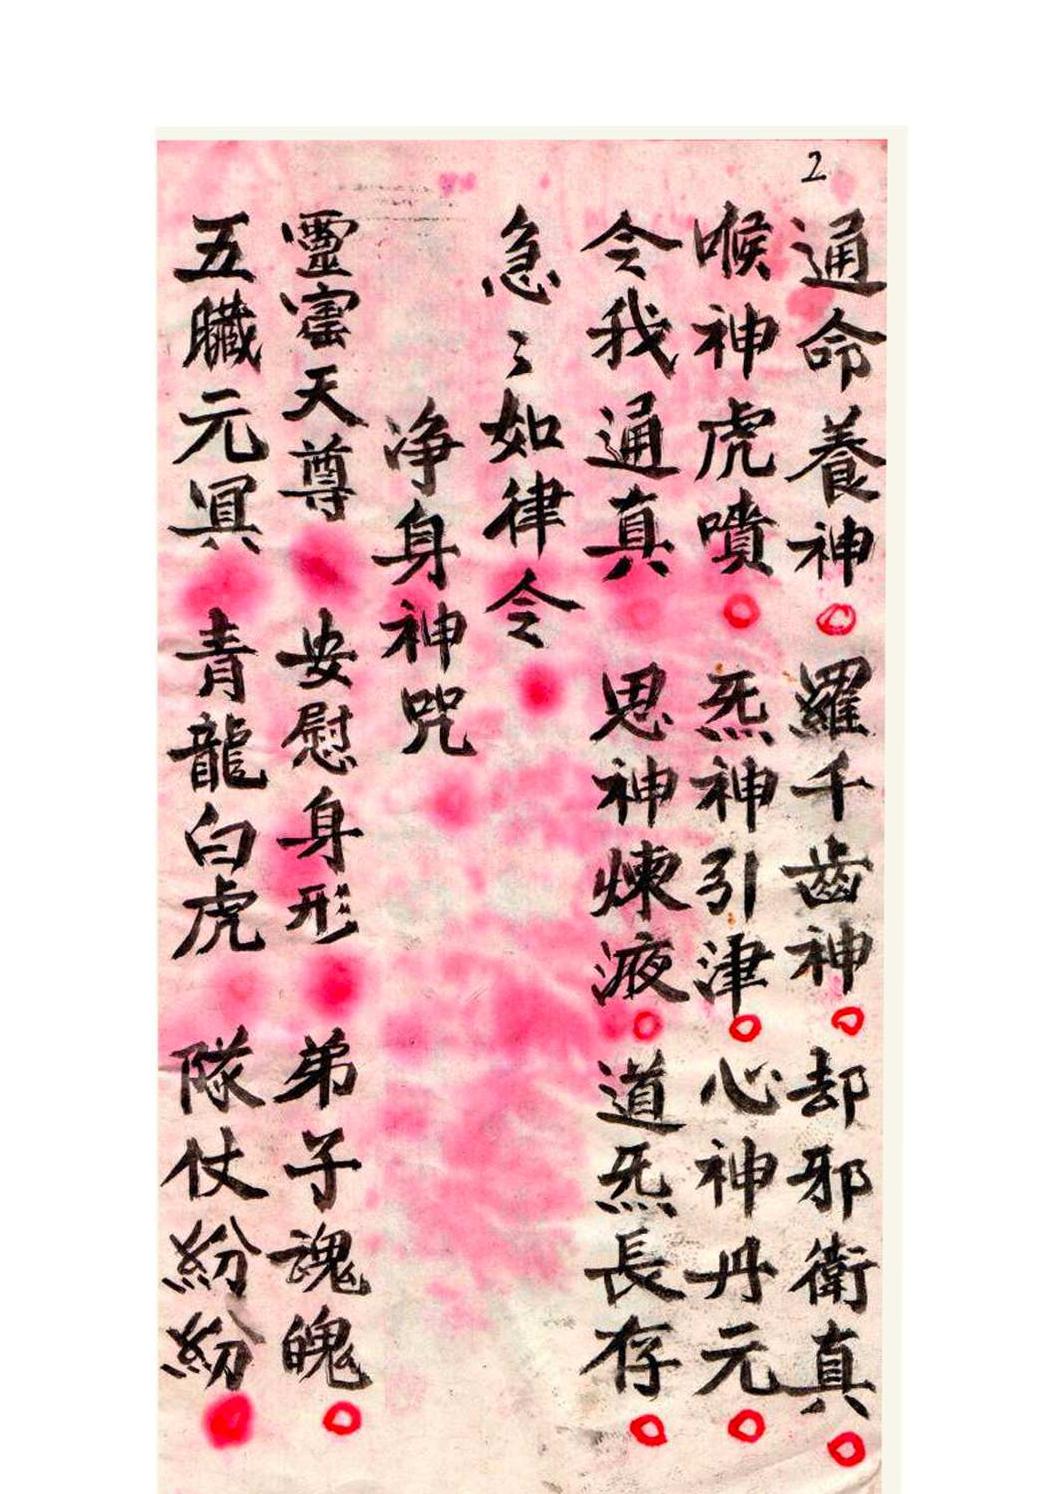 2
通命養神 羅千齒神 却邪衛真
喉神虎噴 炁神引津 心神丹元
令我通真 思神煉液 道炁長存
急〻如律令
净身神咒
靈寶天尊 安慰身形 弟子魂魄
五臟元冥 青龍白虎 隊仗紛紛